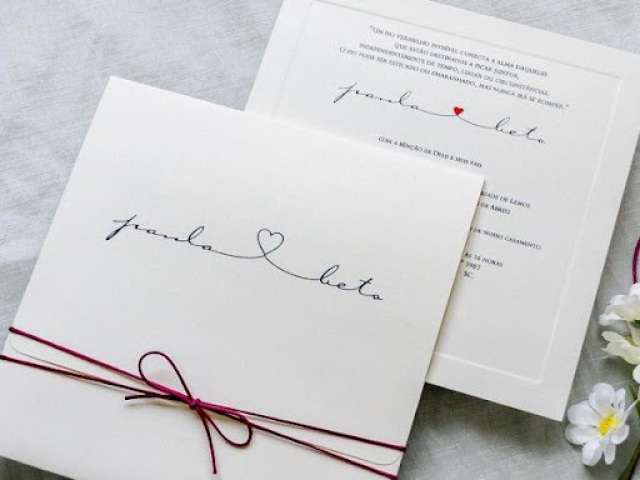 "Um fio vermelho invisível conecta a alma daqueles
que estão destinados a ficar juntos,
independentemente de tempo, lugar ou circunstância.
O fio pode ser esticado ou emaranhado, mas nunca irá se romper."
paula beto
com a benção de Deus e seus pais
dade de Lemos
de Abreu
de nosso casamento
às 16 horas
3987
SC.
paula beto